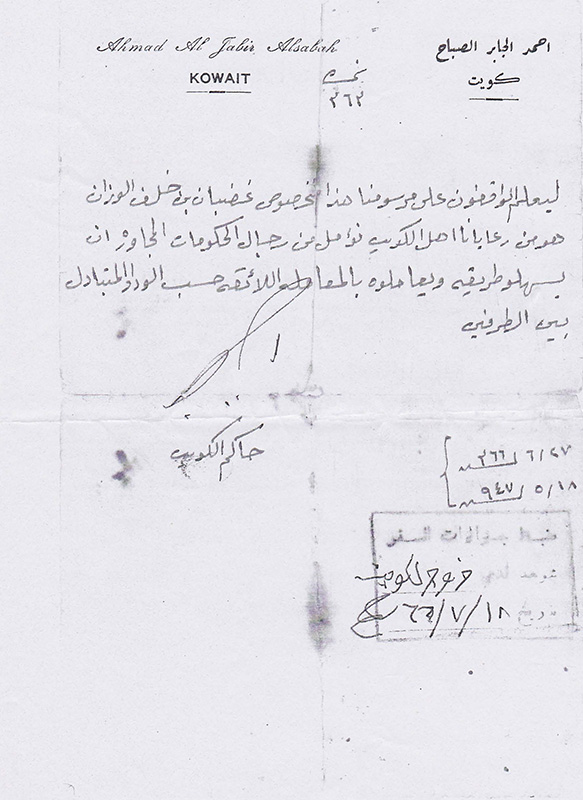 Ahmad Al Jabir Alsabah
KOWAIT
احمد الجابر الصباح
كويت
نمرة
٣٦٣
ليعلم الواقفون على مرسومنا هذا بخصوص غضبان بن خلف الوزان
هو من رعايانا اهل الكويت نؤمل من رجال الحكومات المجاوره ان
يسهلو طريقه ويعاملوه بالمعامله اللائقه حسب الود المتبادل
بين الطرفين
حاكم الكويت
٢٧/٦/٣٦٦
١٨/٥/٩٤٧
ضبط جوازات السفر
خروج لكويت
تاريخ ١٨/٧/٦٦